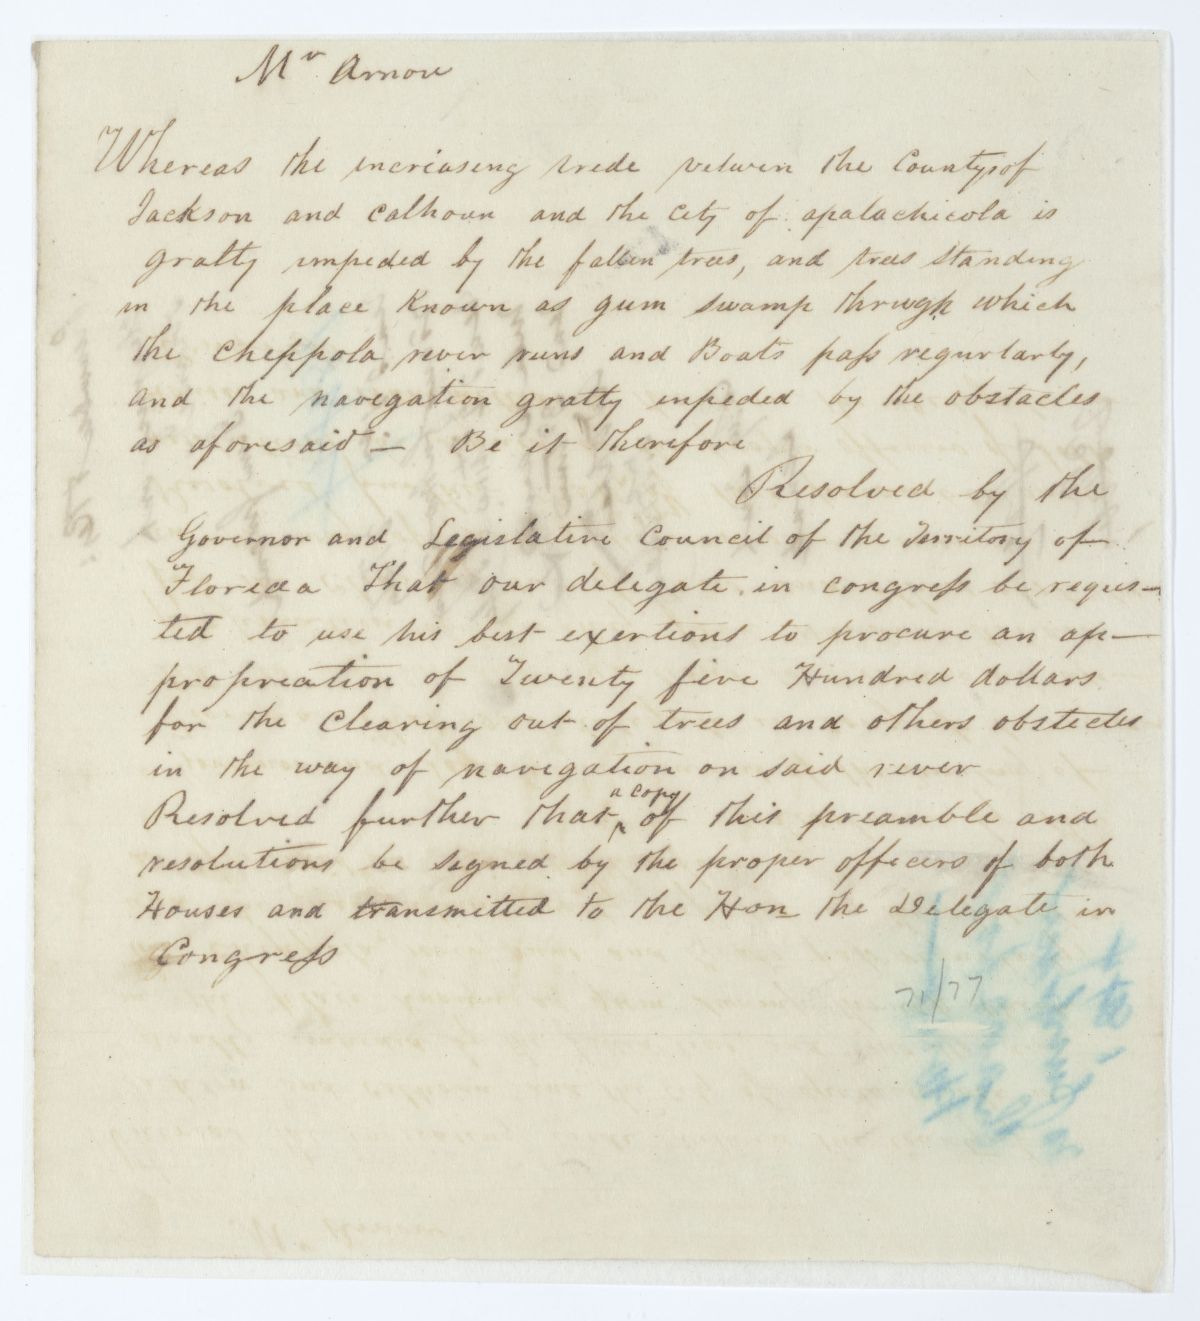 Mr Arnow
Whereas the increaseng trede between the Countys of
Jackson and Calhoun and the City of apalachicola is
gratly impeded by the fallen trees, and trees standing
in the place Known as gum swamp through which
the Cheppola rever runs and Boats pass regurlarly,
and the navegation gratly enpeded by the obstacles
as aforesaid — Be it therefore
Resolved by the
Governor and Legislative Council of the Territory of
Floreda That our delegate in congress be reques-
ted to use his best exertions to procure an ap-
propreation of Twenty five Hundred dollars
for the Clearing out of trees and others obstecles
in the way of navegation on said rever
Resolved further that a copy of this preamble and
resolutions be segned by the proper officers of both
Houses and transmitted to the Hon the Delegate in
Congress
71/77